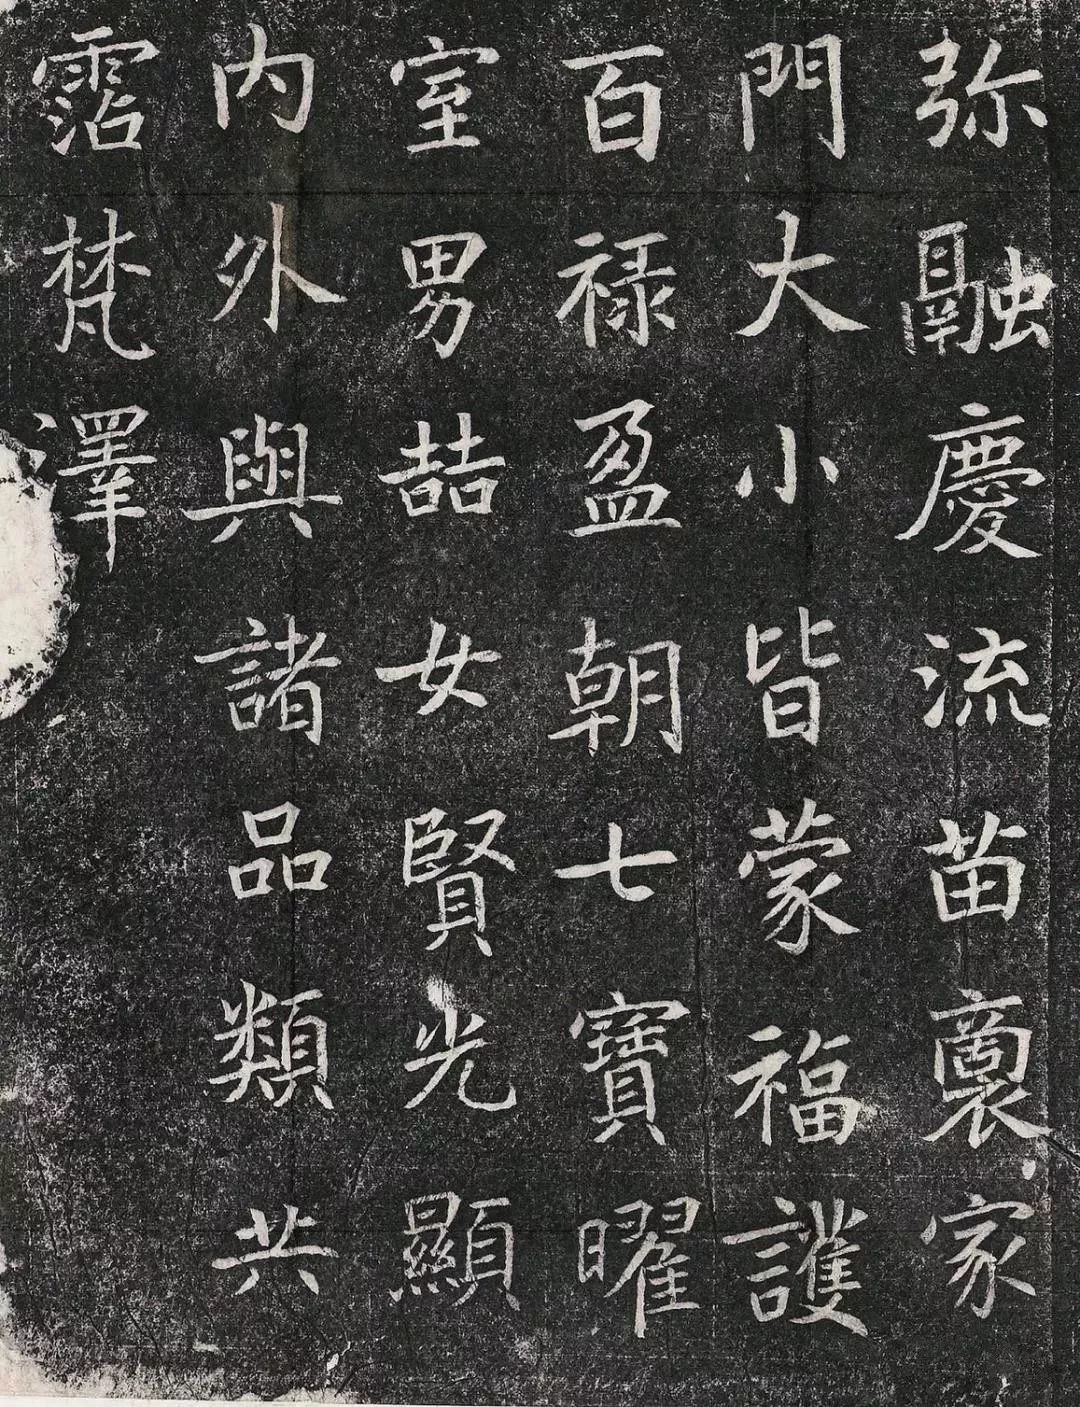 弥融慶流苗裏家
門大小皆蒙福護
百禄盈朝七寶曜
室男喆女賢光顯
内外與諸品類共
霑梵澤